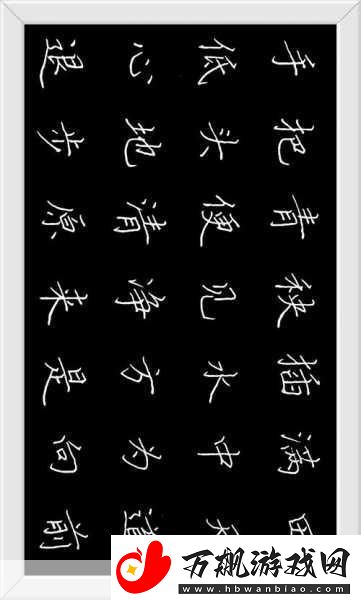 手把青秧插满田
低头便见水中天
心地清净方为道
退步原来是向前
万飙游戏网
www.hbwanbiao.com